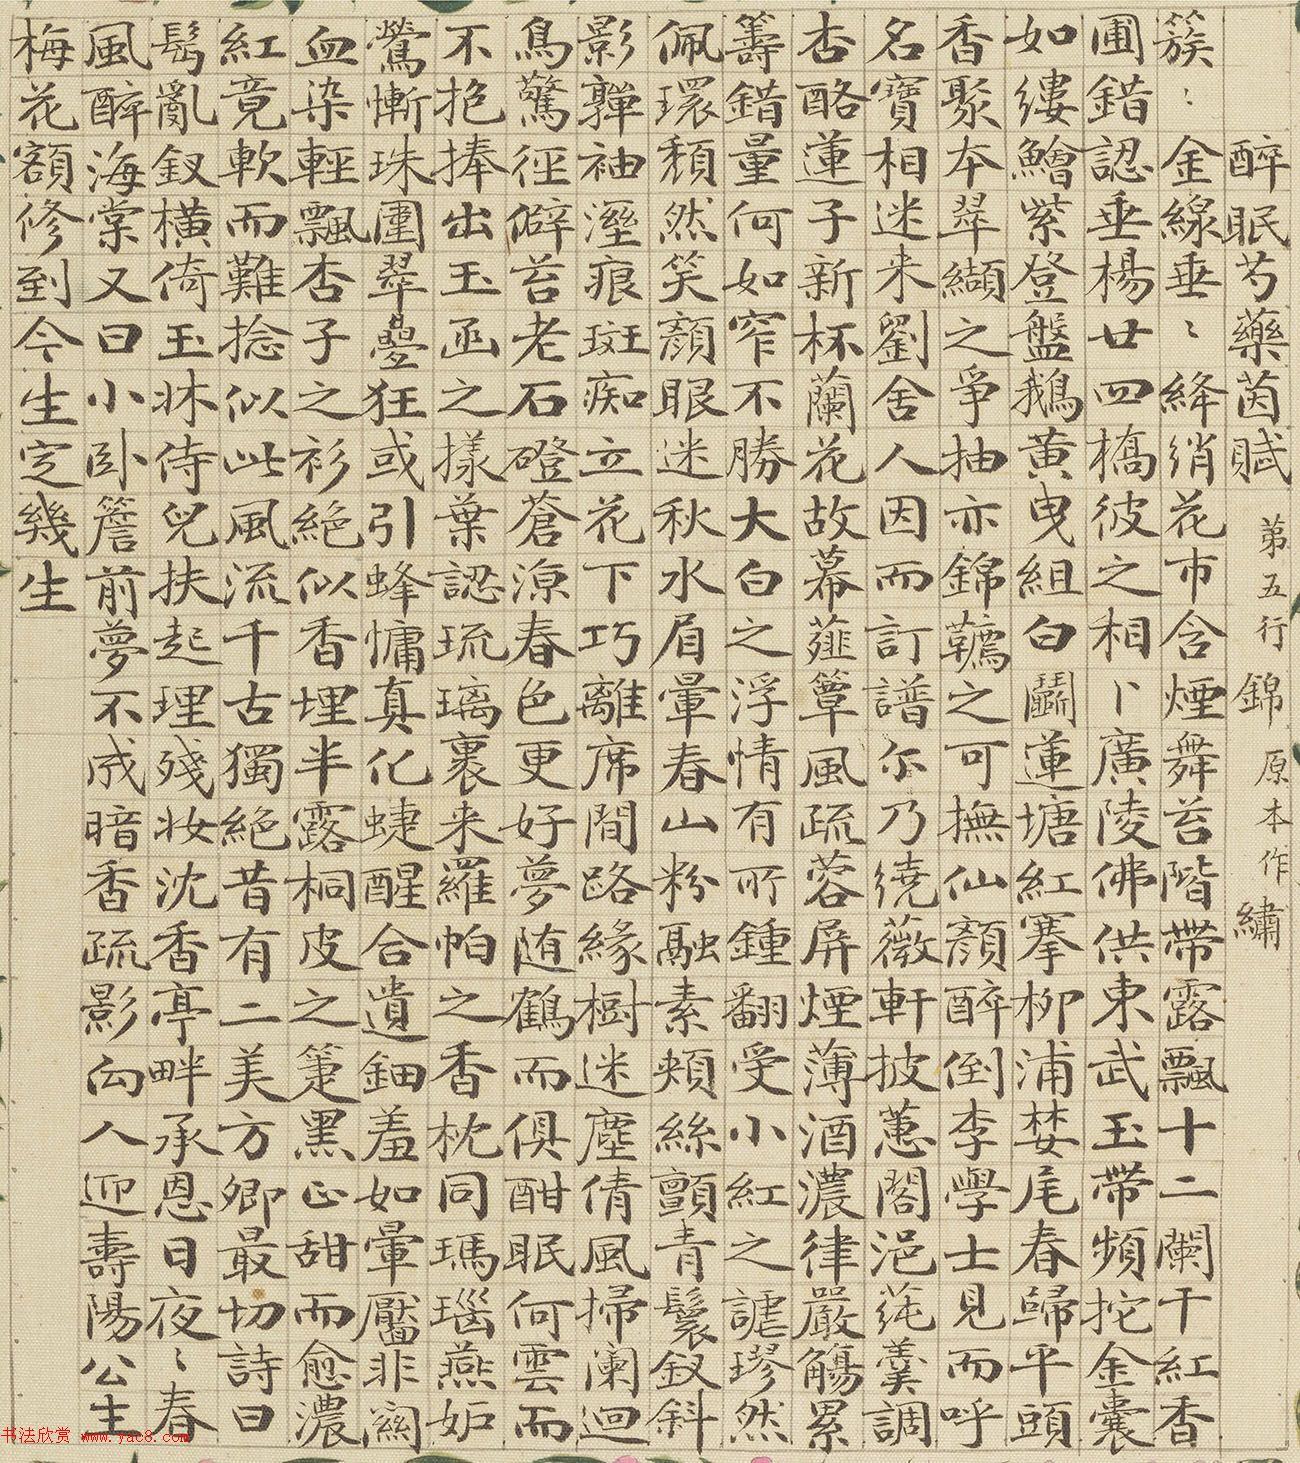 醉眠芍藥茵賦 第五行 錦 原本作 繡
簇〻金線垂〻絳綃花市含煙舞苔階帶露飄十二闌干紅香
圃錯認垂楊廿四橋彼之相卜廣陵佛供東武玉帶頻拕金囊
如縷鱠紫登盤鵝黃曳組白鬭蓮塘紅搴柳浦婪尾春歸平頭
香聚本翠纈之爭抽亦錦韉之可撫仙顏醉倒李學士見而呼
名寶相迷来劉舍人因而訂譜尔乃繞薇軒披蕙閣浥蓴羹調
杏酪蓮子新杯蘭花故幕薤簟風疏蓉屏煙薄酒濃律嚴觴累
籌錯量何如窄不勝大白之浮情有所鍾翻受小紅之謔璆然
佩環頹然笑顏眼迷秋水眉暈春山粉融素頰絲顫青鬟釵斜
影嚲袖溼痕斑痴立花下巧離席間路緣樹迷塵倩風掃闌迴
鳥驚徑僻苔老石磴蒼涼春色更好夢随鶴而俱酣眠何雲而
不抱捧出玉函之樣葉認琉璃裹来羅帕之香枕同瑪瑙燕妒
鶯慚珠圍翠疊狂或引蜂慵真化蜨醒合遺鈿羞如暈靨非關
血染輕飄杏子之衫絕似香埋半露桐皮之箑黑正甜而愈濃
紅竟軟而難捻似此風流千古獨絕昔有二美方卿最切詩曰
髩亂釵橫倚玉牀侍兒扶起理殘妝沈香亭畔承恩日夜〻春
風醉海棠又曰小卧簷前夢不成暗香疏影向人迎壽陽公主
梅花額修到今生定幾生
书法欣赏 www.yac8.com